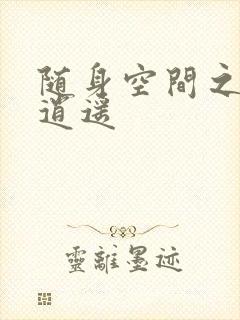 随身空間之
逍遥
靈離墨迹